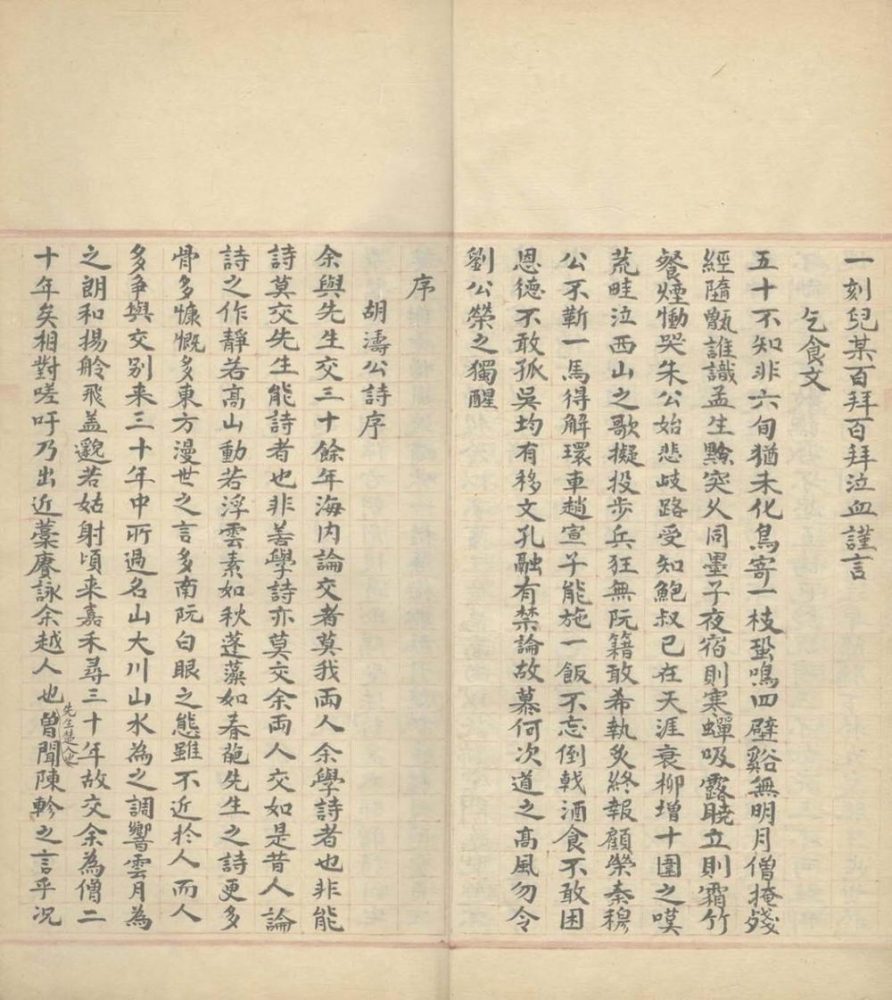 一刻兒某百拜百拜泣血謹言
乞食文
五十不知非六旬猶未化鳥寄一枝蛩鳴四壁谿無明月僧掩殘
經隨甑誰識孟生黔突久同墨子夜宿則寒蟬吸露曉立則霜竹
餐煙慟哭朱公始悲歧路受知鮑叔已在天涯衰柳增十圍之嘆
荒畦泣西山之歌擬投步兵狂無阮籍敢希執炙終報顧榮秦穆
公不靳一馬得解環車趙宣子能施一飯不忘倒戟酒食不敢困
恩德不敢孤吳均有移文孔融有禁論故慕何次道之高風勿令
劉公榮之獨醒
序
胡濤公詩序
余與先生交三十餘年海內論交者莫我兩人余學詩者也非能
詩莫交先生能詩者也非善學詩亦莫交余兩人交如是昔人論
詩之作靜若高山動若浮雲素如秋蓬藻如春葩先生之詩更多
骨多慷慨多東方漫世之言多南阮白眼之態雖不近於人而人
多爭與交別來三十年中所過名山大川山水為之調響雲月為
之朗和揚舲飛蓋邈若姑射頃來嘉禾尋三十年故交余為僧二
十年矣相對嗟吁乃出近藁賡詠余越人也先生楚人也曾聞陳軫之言乎況